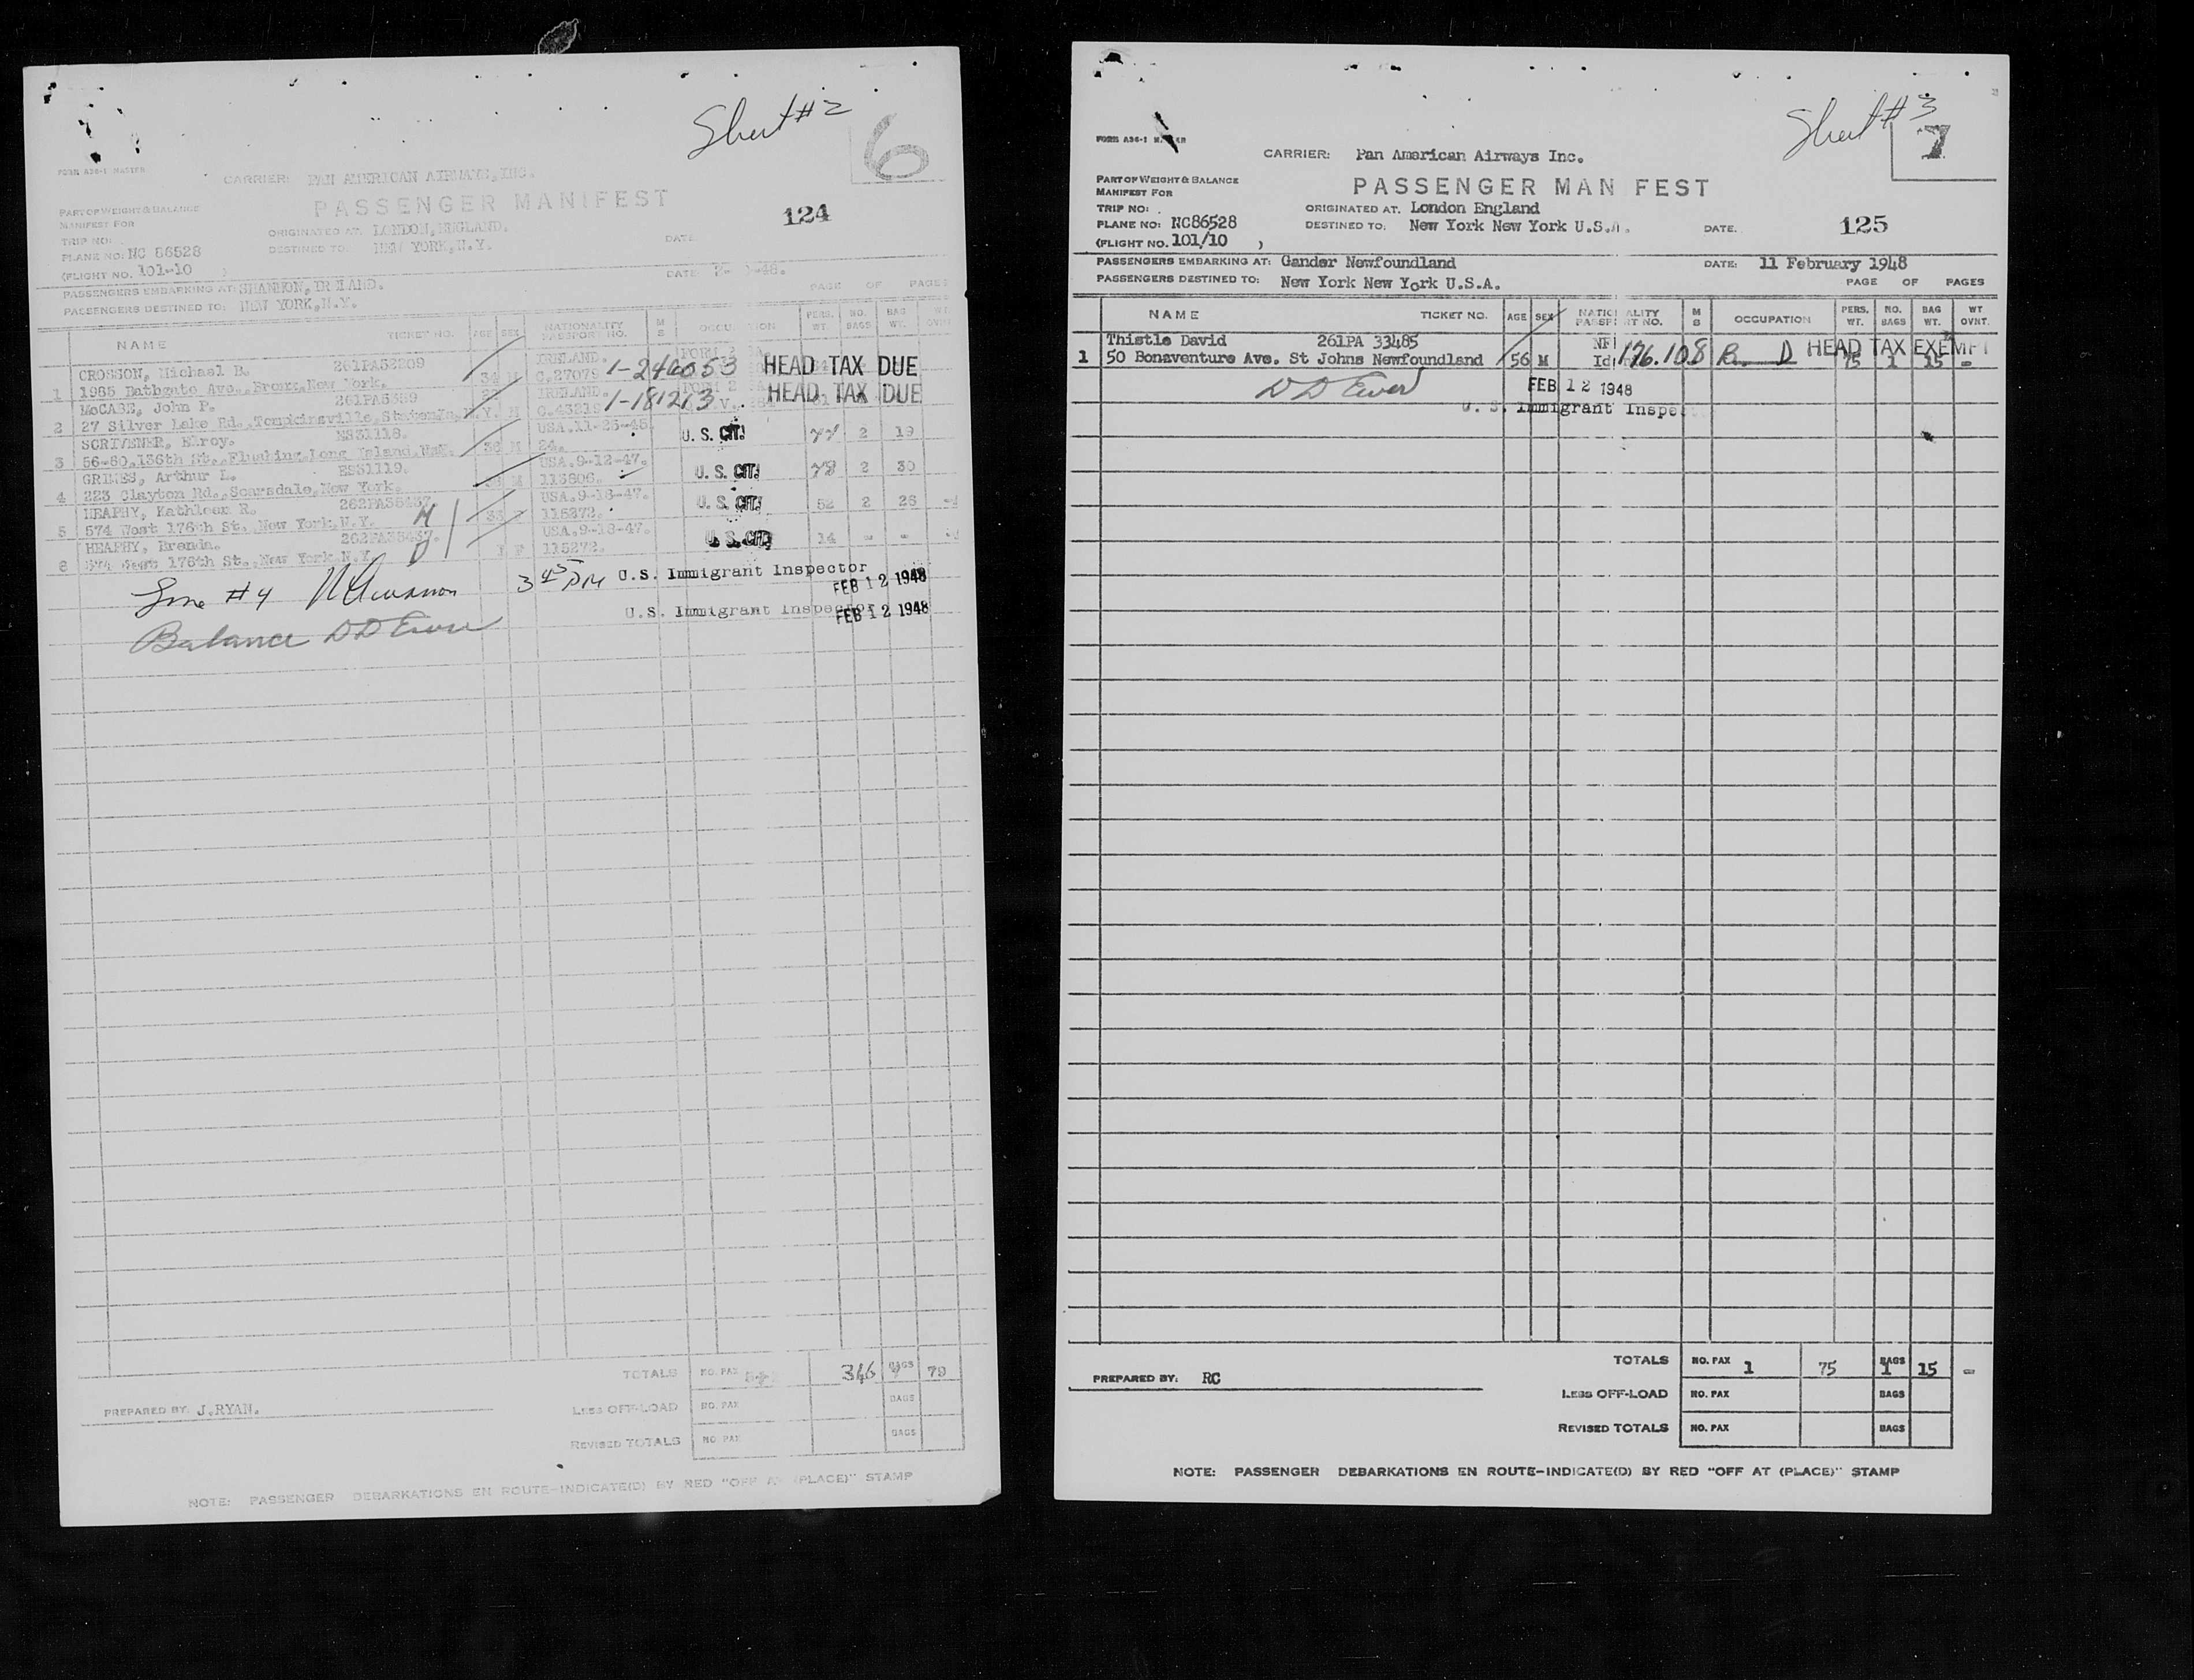 Sheet #2
6
FORM A36-1 MASTER
CARRIER: PAN AMERICAN AIRWAYS, INC.
PART OF WEIGHT & BALANCE
MANIFEST FOR
PASSENGER MANIFEST
124
TRIP NO:
ORIGINATED AT. LONDON, ENGLAND.
PLANE NO: NC 86528
DESTINED TO: NEW YORK, N.Y.
DATE
(FLIGHT NO. 101-10 )
PASSENGERS EMBARKING AT: SHANNON, IRELAND.
DATE: 2- -48.
PASSENGERS DESTINED TO: NEW YORK, N.Y.
PAGE OF PAGES
NAME TICKET NO. AGE SEX NATIONALITY PASSPORT NO. M S OCCU TION PERS. WT. NO. BAGS BAG WT. WT OVNT.
CROSSON, Michael B. 261PA32209 IRELAND. FORM 2
1 1985 Bathgate Ave., Bronx, New York. 34 M C.27079 1-246053 HEAD TAX DUE
McCABE, John P. 261PA6359 IRELAND. 2
2 27 Silver Lake Rd., Tompkinsville, Staten Is, N.Y. M C.43219 1-181213 V. HEAD TAX DUE
SCRIVENER, Elroy. ES31118. USA.11-26-46
3 56-80, 136th St., Flushing, Long Island, 36 M 24. U. S. CIT. 77 2 19
GRIMES, Arthur L. ES31119. USA.9-12-47.
4 223 Clayton Rd., Scarsdale, New York. M 113806. U. S. CIT. 78 2 30
HEAPHY, Kathleen R. 262PA36437. USA.9-18-47.
5 574 West 176th St., New York, N.Y. M 33 F 115272. U. S. CIT. 52 2 28
HEAPHY, Brenda. 262PA36437. USA.9-18-47.
6 574 West 176th St., New York, N.Y. F 115272. U. S. CIT. 14 - -
Line #4 3 45 PM U.S. Immigrant Inspector
FEB 12 1948
U.S. Immigrant Inspector
FEB 12 1948
Balance D D Ewer
TOTALS NO. PAX 346 BAGS 79
PREPARED BY: J.RYAN.
LESS OFF-LOAD NO. PAX BAGS
REVISED TOTALS NO. PAX BAGS
NOTE: PASSENGER DEBARKATIONS EN ROUTE-INDICATE(D) BY RED "OFF AT (PLACE)" STAMP
Sheet #3
7
FORM A36-1
CARRIER: Pan American Airways Inc.
PART OF WEIGHT & BALANCE
MANIFEST FOR
PASSENGER MAN FEST
TRIP NO: .
ORIGINATED AT. London England
PLANE NO: NC86528
DESTINED TO: New York New York U.S.A.
DATE.
125
(FLIGHT NO. 101/10 )
PASSENGERS EMBARKING AT: Gander Newfoundland
DATE: 11 February 1948
PASSENGERS DESTINED TO: New York New York U.S.A.
PAGE OF PAGES
NAME TICKET NO. AGE SEX NATIC ALITY PASSF RT NO. M S OCCUPATION PERS. WT. NO. BAGS BAG WT. WT OVNT.
Thistle David 261PA 33485 NF HEAD TAX EXEMPT
1 50 Bonaventure Ave. St Johns Newfoundland 56 M Id 176.108 D 75 1 15 -
D D Ewer
FEB 12 1948
U. S. Immigrant Inspe
TOTALS NO. PAX 1 75 BAGS 1 15 -
PREPARED BY: RC
LESS OFF-LOAD NO. PAX BAGS
REVISED TOTALS NO. PAX BAGS
NOTE: PASSENGER DEBARKATIONS EN ROUTE-INDICATE(D) BY RED "OFF AT (PLACE)" STAMP